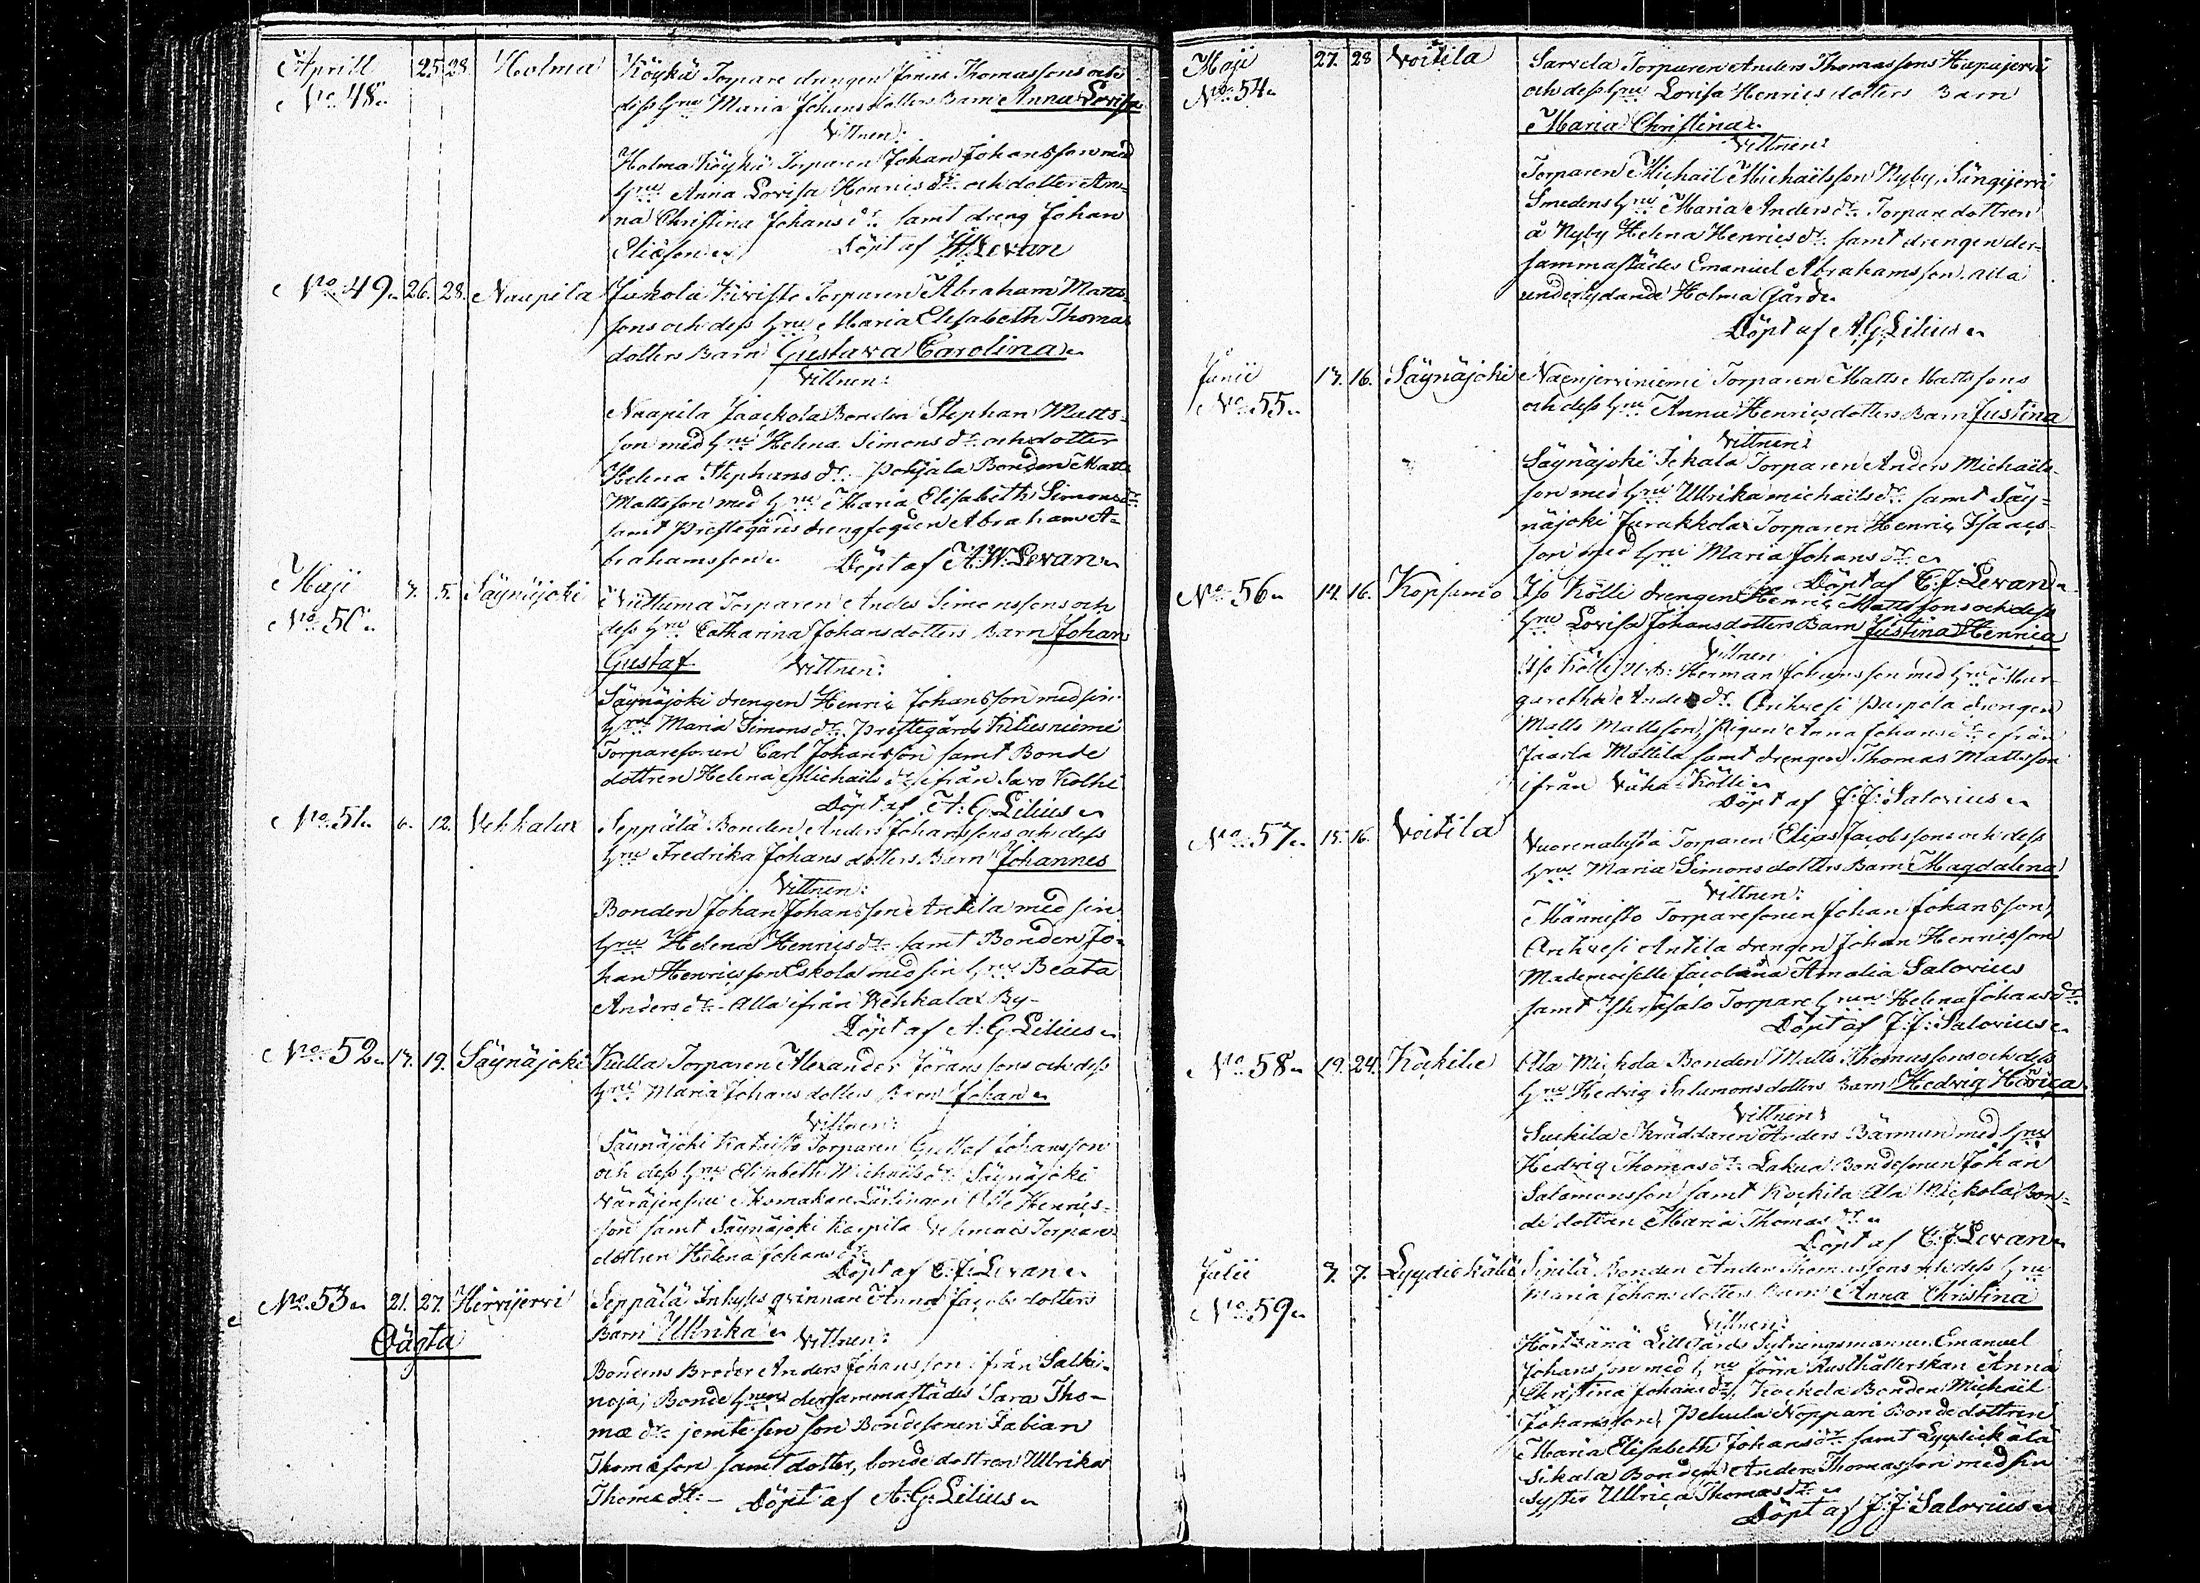 Aprill 25 28 Holma Köykä Torpare drengen Jonas Thomassons och
No 48. dess Hru Maria Johansdotters Barn Anna Lovisa
Vittnen:
Holma Köykä Torparen Johan Johansson med
Hru Anna Lovisa Henricsdr och dotter An-
na Christina Johansdr samt dreng Johan
Eliæson. Döpt af A.W. Levan
No 49. 26. 28. Naapila Jukola Kiviste Torparen Abraham Matts-
sons och dess Hru Maria Elisabeth Thomæ
dotters Barn Gustava Carolina.
Vittnen:
Naapila Jaackola Bonden Stephan Matts-
son med Hru Helena Simonsdr och dotter
Helena Stephansdr Pohjala Bonden Matts
Mattsson med Hru Maria Elisabeth Simonsdr
samt Prestegårds drengfogden Abraham A-
brahamsson. Döpt af A.W. Levan.
Maji 3. 5. Säynäjoki Niittuma Torparen Anders Simonssons och
No 50. dess Hru Catharina Johansdotters Barn Johan
Gustaf. Vittnen:
Säynäjoki drengen Henric Johansson med sin
Hru Maria Simonsdr Prestegårds Kiliesniemi
Torparesonen Carl Johansson samt Bonde
dottren Helena Michaëlsdr ifrån Savo Kolhi
Döpt af A:G:Lilius.
No 51. 6. 12. Vehkalax Seppälä Bonden Anders Johanssons och dess
Hru Fredrika Johansdotters Barn Johannes
Vittnen:
Bonden Johan Johansson Antila med sin
Hru Helena Henricsdr samt Bonden Jo-
han Henricsson Eskola med sin Hru Beata
Andersdr - alla ifrån Wehkalax By-
Döpt af A:G:Lilius.
No 52. 17. 19. Säynäjoki Kulla Torparen Alexander Jöranssons och dess
Hru Maria Johansdotters Barn Johan.
Vittnen:
Säynäjoki Torparen Gustaf Johansson
och dess Hru Elisabeth Michaëlsdr Säynäjoki
Henrics-
son samt Säynäjoki Torpare
dottren Helena Johansdr
Döpt af C:J:Levan.
No 53. 21. 27. Hirvijervi Seppälä Inhyses qvinnan Anna Jacobsdotters
Oägta Barn Ulrika. Vittnen:
Bondens Broder Anders Johansson ifrån Salki-
noja, Bonde Hrun dersammastädes Sara Tho-
mædr jemte sin son Bondesonen Fabian
Thomæson samt dotter, bondedottren Ulrika
Thomædr - Döpt af A:G:Lilius.
Maji 27. 28 Voitila Sarvela Torparen Anders Thomassons Hapajervi
No 54. och dess Hru Lovisa Henricsdotters Barn
Maria Christina.
Vittnen:
Torparen Michaël Michaëlsson Nyby, Sängijervi
Smedens Hru Maria Andersdr Torparedottren
å Nyby Helena Henricsdr samt drengen der-
sammastädes Emanuel Abrahamsson. Alla
underlydande Holma Gård.
Döpt af A.G.Lilius.
Junii 13. 16. Säynäjoki Naenjerviniemi Torparen Matts Mattssons
No 55. och dess Hru Anna Henricsdotters Barn Justina
Vittnen:
Säynäjoki Torparen Anders Michaëls-
son med Hru Ullrika Michaëlsdr samt Säy-
näjoki Jurakkola Torparen Henric Isaacs-
son med Hru Maria Johansdr.
Döpt af C.J.Levan.
No 56. 14. 16. Kopsamo Iso Kölli drengen Henric Mattssons och dess
Hru Lovisa Johansdotters Barn Justina Henrica
Vittnen
Iso Kölli Herman Johansson med Hru Mar-
garetha Andersdr. Onkvesi Parpola drengen
Matts Mattsson, Pigan Anna Johansdr ifrån
Jaarla Mattila samt drengen Thomas Mattsson
ifrån Vähä-Kölli.
Döpt af J:J:Salovius.
No 57. 15. 16. Voitila Vuorenalusta Torparen Elias Jacobssons och dess
Hru Maria Simonsdotters Barn Magdalena
Vittnen:
Männisto Torparesonen Johan Johansson,
Onkvesi Antila drengen Johan Henricsson
Mademoiselle Jacobina Amalia Salovius
samt Torpare Hrun Helena Johansdr.
Döpt af J:J:Salovius.
No 58. 19. 24. Kockila Ala Mickola Bonden Matts Thomassons och dess
Hru Hedvig Salomonsdotters Barn Hedvig
Vittnen:
Suckila Skräddaren Anders Bärman med Hru
Hedvig Thomasdr Lakua Bondesonen Johan
Salamonsson samt Kockila Ala Mickola Bon-
dedottren Maria Thomasdr.
Döpt af C:J:Levan.
Julii 3. 7. Lyydickälä Sipilä Bonden Anders Thomassons och dess Hru
No 59. Maria Johansdotters Barn Anna Christina
Vittnen:
Lillgårds Sytningsmannen Emanuel
Johansson med Hru förra Rusthållerskan Anna
Christina Johansdr, Kockola Bonden Michaël
Johansson, Pelkula Noppari Bondedottren
Maria Elisabeth Johansdr samt Lyydickälä
Sikala Bonden Anders Thomasson med sin
syster Ullrica Thomasdr.
Döpt af J:J:Salovius.